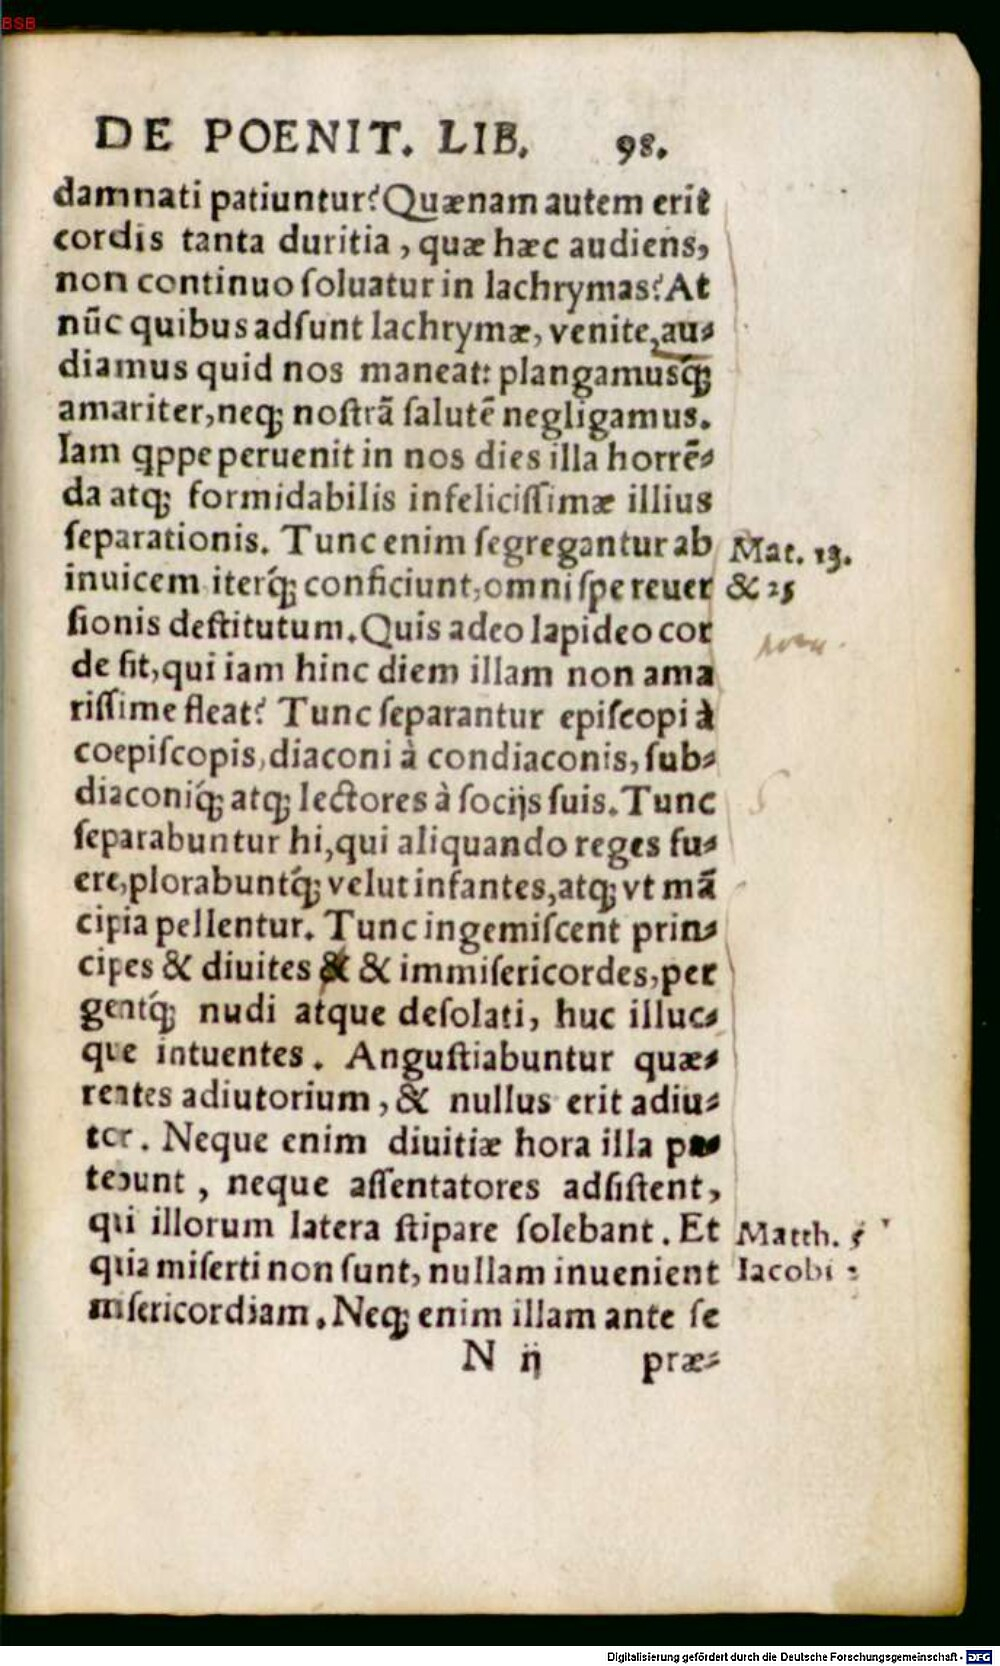 BSB
DE POENIT. LIB. 98.
damnati patiuntur? Quænam autem erit
cordis tanta duritia, quæ hæc audiens,
non continuo ſoluatur in lachrymas? At
nūc quibus adſunt lachrymæ, venite, au-
diamus quid nos maneat: plangamusq́ꝫ
amariter, neqꝫ noſtrā ſalutē negligamus.
Iam qppe peruenit in nos dies illa horrē-
da atqꝫ formidabilis infeliciſſimæ illius
ſeparationis. Tunc enim ſegregantur ab
Mat. 13.
inuicem iterq́ꝫ conficiunt, omni ſpe reuer
& 25
ſionis deſtitutum. Quis adeo lapideo cor
de ſit, qui iam hinc diem illam non ama
riſſime fleat? Tunc ſeparantur epiſcopi à
coepiſcopis, diaconi à condiaconis, ſub-
diaconiq́ꝫ atqꝫ lectores à ſocijs ſuis. Tunc
ſeparabuntur hi, qui aliquando reges fu-
ere, plorabuntq́ꝫ velut infantes, atqꝫ vt mā
cipia pellentur. Tunc ingemiſcent prin-
cipes & diuites & & immiſericordes, per
gentq́ꝫ nudi atque deſolati, huc illuc-
que intuentes. Anguſtiabuntur quæ-
rentes adiutorium, & nullus erit adiu-
tor. Neque enim diuitiæ hora illa pa-
tebunt, neque aſſentatores adſiſtent,
qui illorum latera ſtipare ſolebant. Et
Matth. 5
quia miſerti non ſunt, nullam inuenient
Iacobi 2
miſericordiam. Neqꝫ enim illam ante ſe
N ij præ-
Digitalisierung gefördert durch die Deutsche Forschungsgemeinschaft - DFG